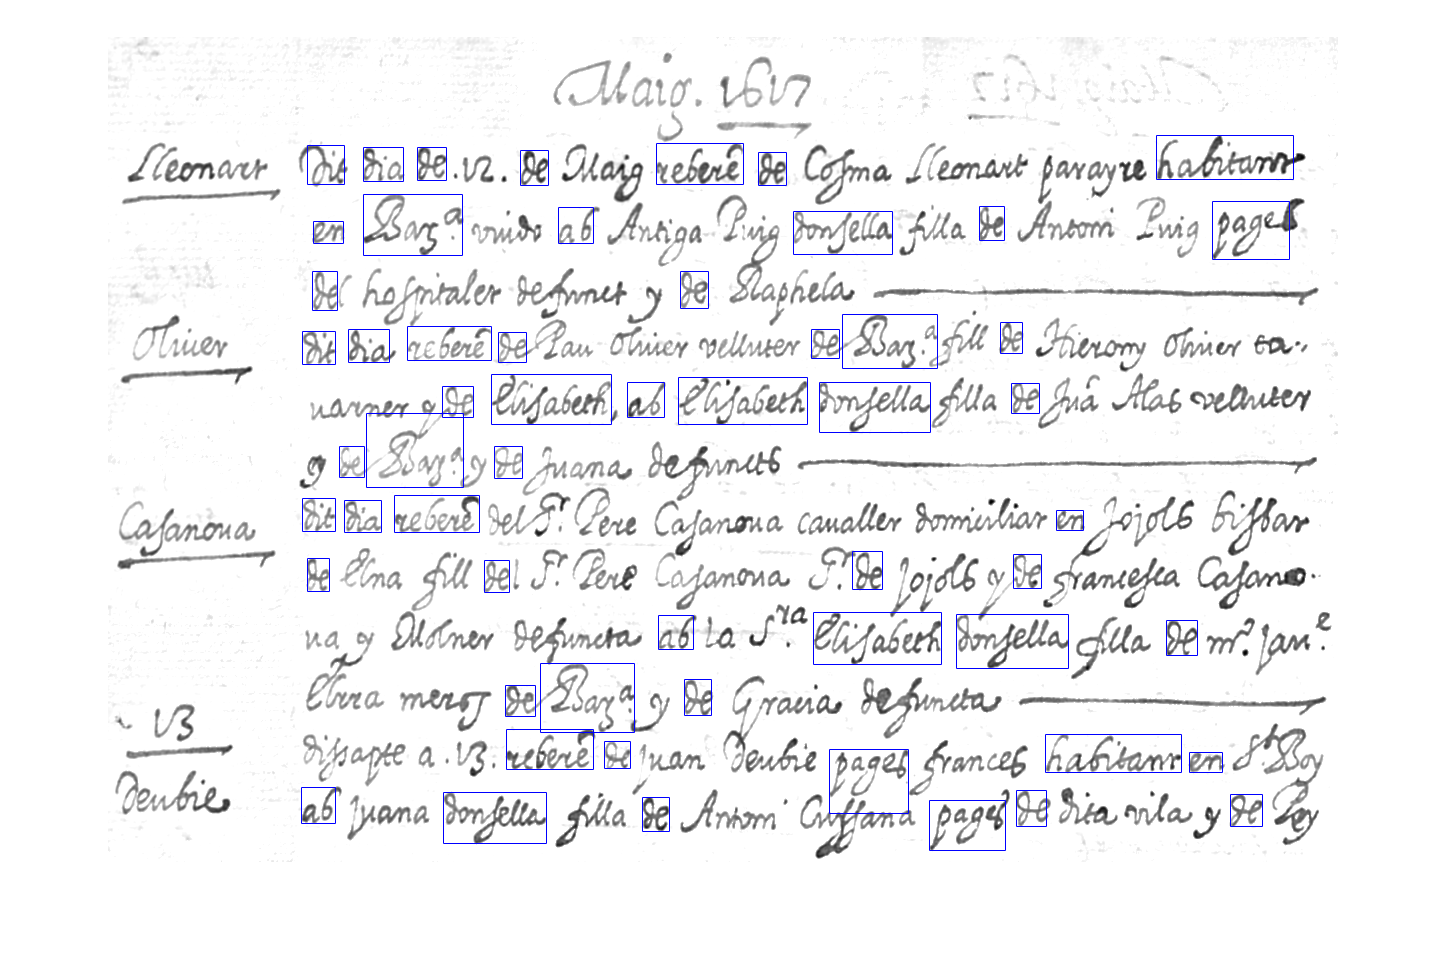 Maig. 1617
Lleonart
Dit dia de .12. de Maig reberẽ de Cosma Lleonart parayre habitant
en Barᵃ. viudo ab Antiga Puig donsella filla de Antoni Puig pages
del hospitalet defunct y de Raphela
Oliuer
dit dia reberẽ de Pau Oliuer velluter de Barᵃ. fill de Hieronỹ Oliuer ta..
uarner y de Elisabeth, ab Elisabeth donsella filla de Juã Alas velluter
y de Barᵃ. y de Juana defuncts
Casanoua
dit dia reberẽ del Sʳ. Pere Casanoua caualler domiciliat en Jojols bisbat
de Elna fill del Sʳ. Pere Casanoua Sʳ. de Jojols y de francesca Casano.
ua y Molner defuncta ab la Sʳᵃ. Elisabeth donsella filla de mº. Jauᵉ.
de Barᵃ. y de Gracia defuncta
13
dissapte a .13. reberẽ de Juan Deubie pages frances habitant en Sᵗ. Boy
Deubie
ab Juana donsella filla de Antoni Cussana pages de dita vila y de Pey